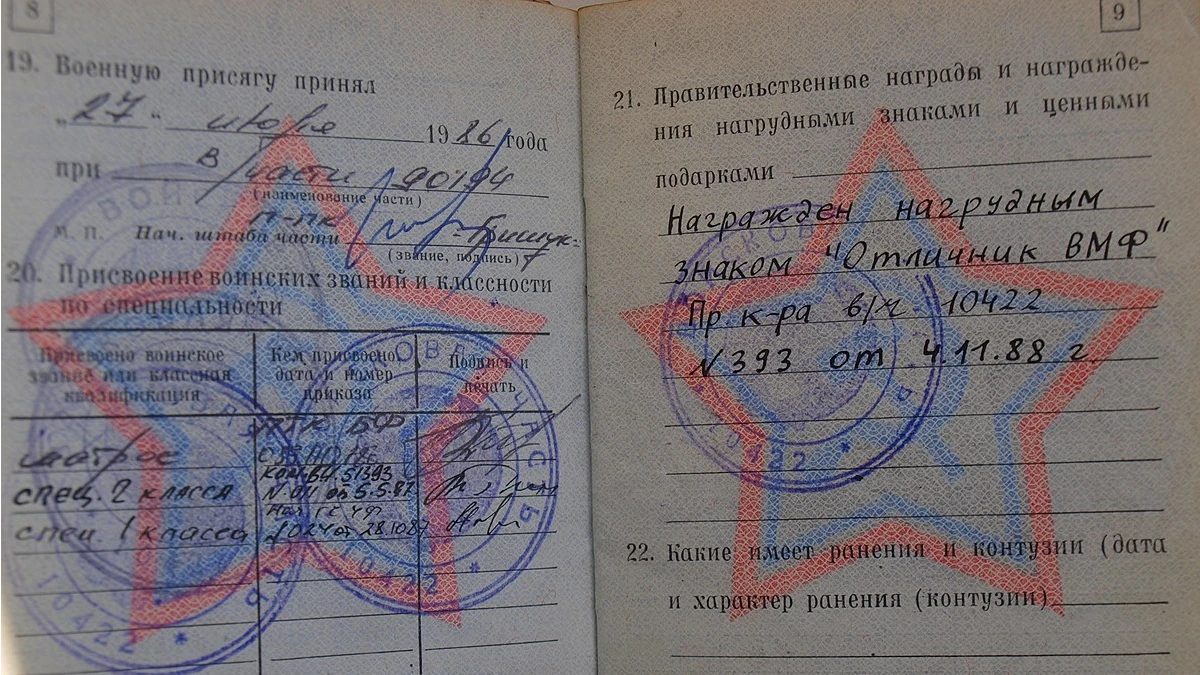 8
19. Военную присягу принял
„27“ 1986 года
при в/части 90194
(наименование части)
п-пк
М. П. Нач. штаба части
(звание, подпись)
20. Присвоение воинских званий и классности
по специальности
Присвоено воинское
звание или классная
квалификация
Кем присвоено
дата и номер
приказа
Подпись и
печать
матрос
БФ
спец. 2 класса
Ком. в/ч 51393
от 5.5.87
спец. 1 класса
от 28.10.87
ВОЙ
ОВАЯ ЧАСТЬ
10422 *
10422 *
9
21. Правительственные награды и награжде-
ния нагрудными знаками и ценными
подарками
Награжден нагрудным
знаком "Отличник ВМФ"
Пр. к-ра в/ч 10422
№ 393 от 4.11.88 г.
10422 *
22. Какие имеет ранения и контузии (дата
и характер ранения (контузии)